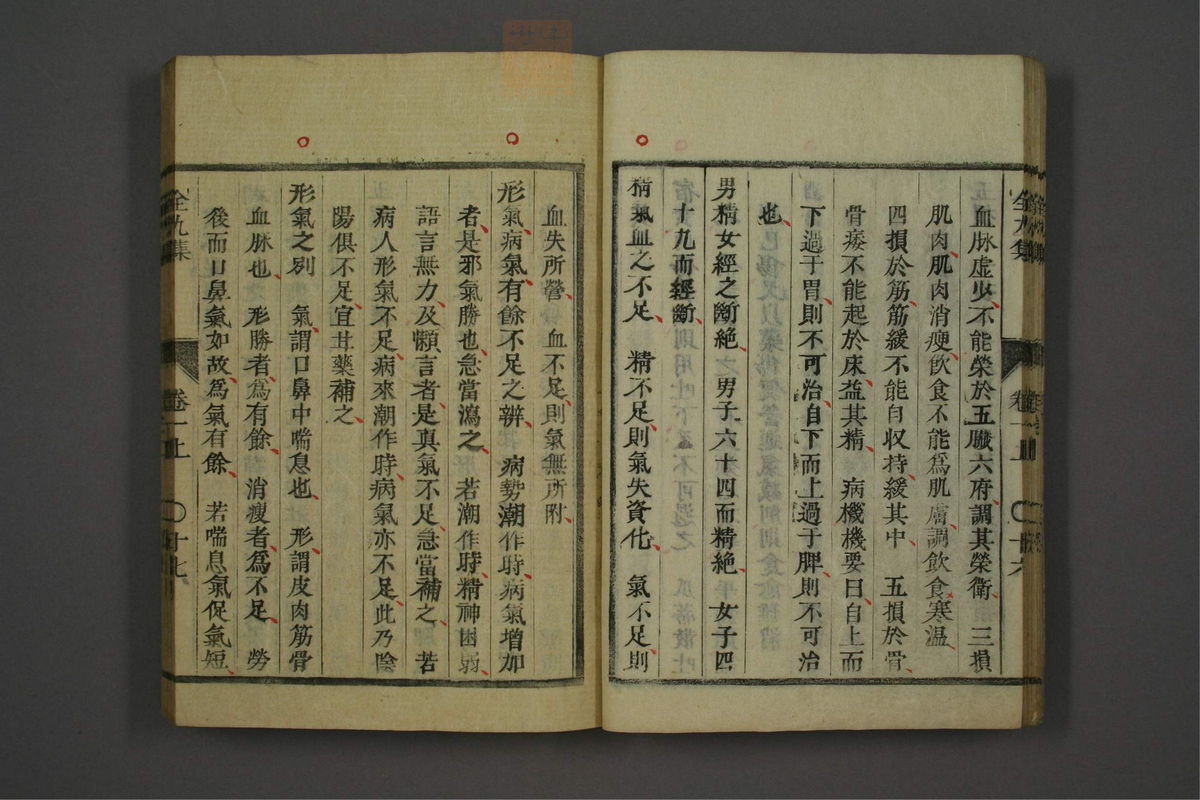 血脉虚少不能榮於五臟六府調其榮衛 三損
肌肉肌肉消瘦飲食不能爲肌膚調飲食寒温
四損於筋筋緩不能自収持緩其中 五損於骨
骨痿不能起於床益其精 病機機要曰自上而
下過于胃則不可治自下而上過于脾則不可治
也
男精女經之斷絶 男子六十四而精絶 女子四
十九而經斷
精氣血之不足 精不足則氣失資化 氣不足則
血失所營 血不足則氣無所附
形氣病氣有餘不足之辨 病勢潮作時病氣增加
者是邪氣勝也急當瀉之 若潮作時精神困弱
語言無力及懶言者是真氣不足急當補之 若
病人形氣不足病來潮作時病氣亦不足此乃陰
陽俱不足宜甘藥補之
形氣之別 氣謂口鼻中喘息也 形謂皮肉筋骨
血脉也 形勝者爲有餘 消瘦者爲不足 勞
後而口鼻氣如故爲氣有餘 若喘息氣促氣短
全九集 卷一上 十六
全九集 卷一上 十七